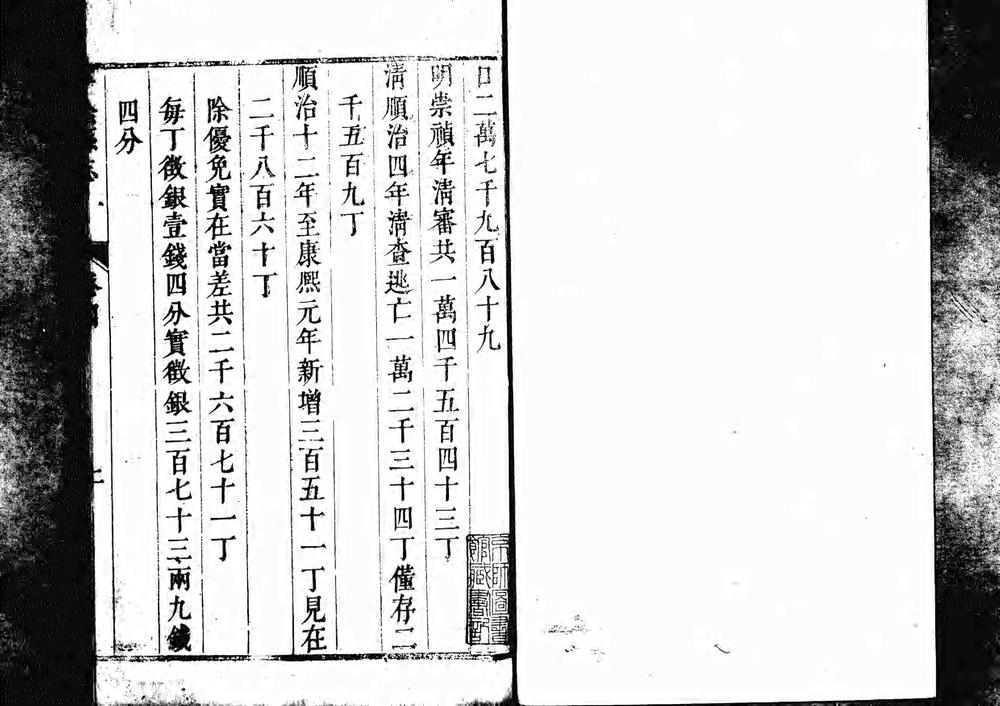 口二萬七千九百八十九
明崇禎年淸審共一萬四千五百四十三丁
淸順治四年淸查逃亡一萬二千三十四丁僅存二
千五百九丁
順治十二年至康熙元年新增三百五十一丁見在
二千八百六十丁
除優免實在當差共二千六百七十一丁
每丁徵銀壹錢四分實徵銀三百七十三兩九錢
四分
京師圖書
館藏書記